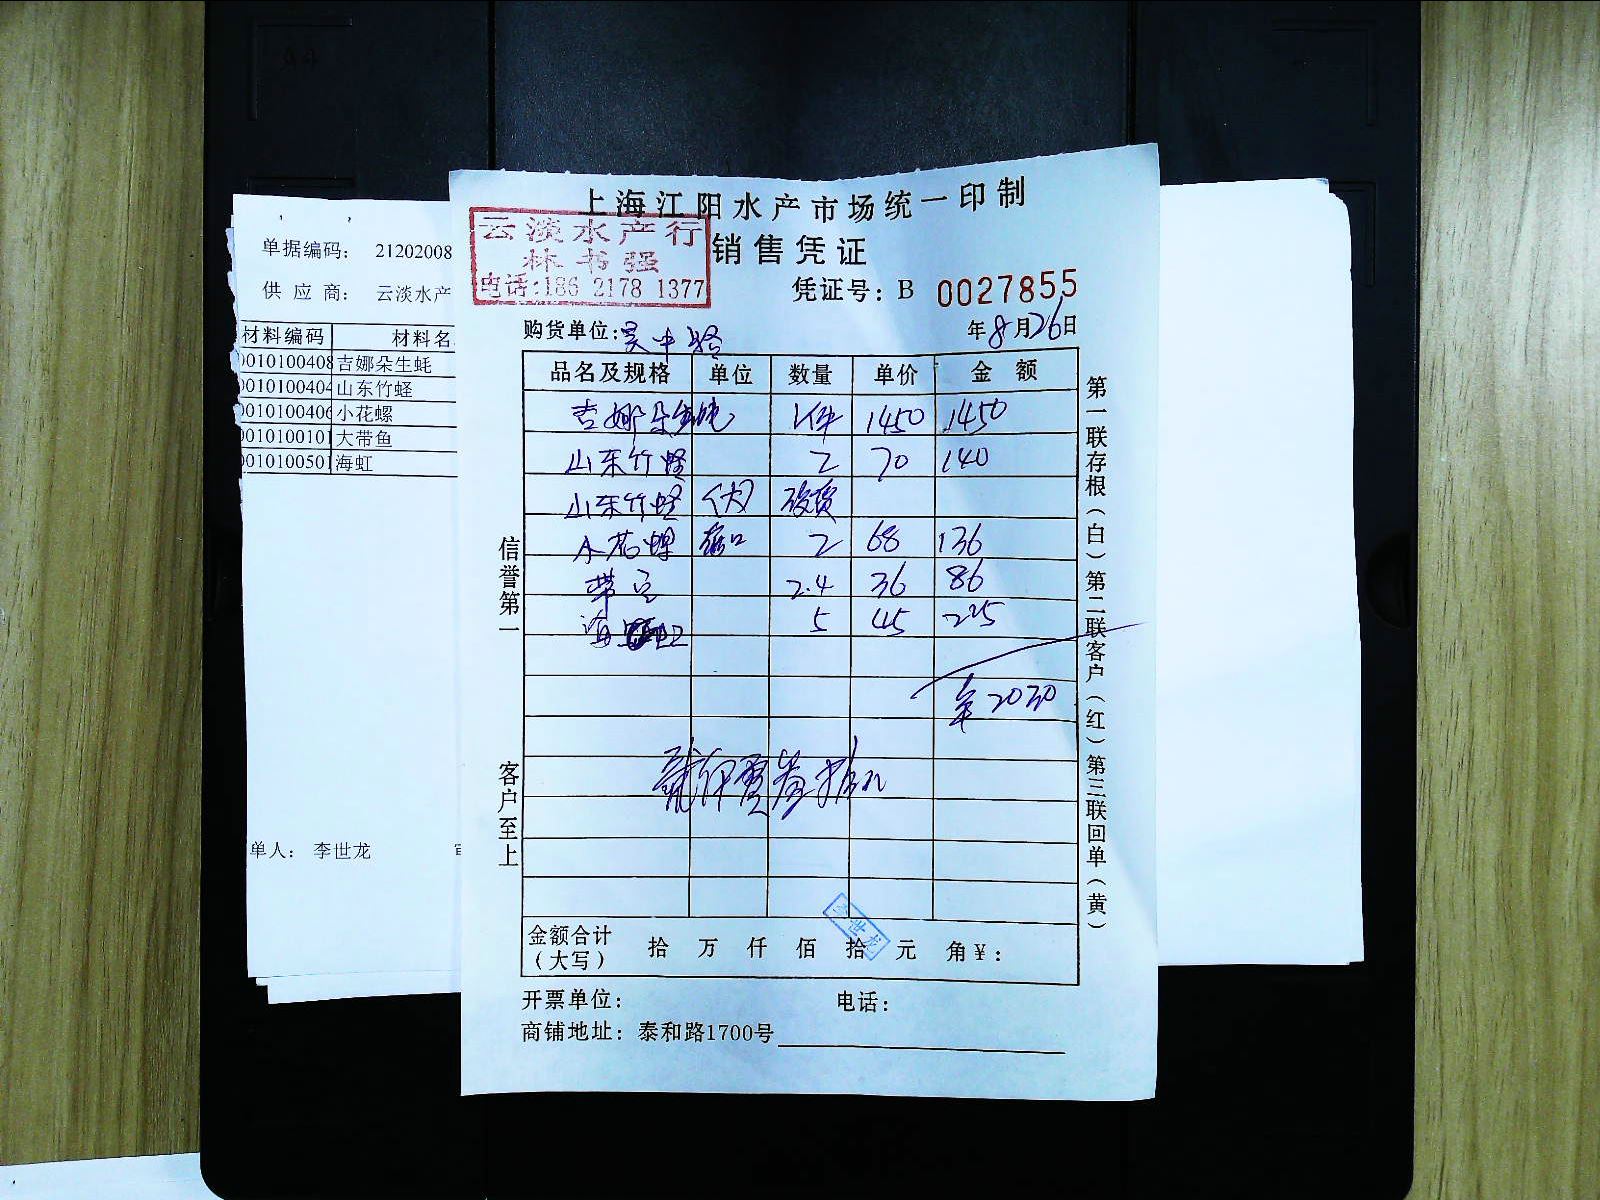 单据编码： 21202008
供应商： 云淡水产
材料编码 材料名
0010100408 吉娜朵生蚝
0010100404 山东竹蛏
0010100406 小花螺
0010100101 大带鱼
0010100501 海虹
单人： 李世龙
上海江阳水产市场统一印制
销售凭证
云淡水产行
林书强
电话:186 2178 1377
凭证号：B 0027855
购货单位:吴中路
年8月26日
品名及规格 单位 数量 单价 金额
吉娜朵生蚝 1件 1450 1450
山东竹蛏 2 70 140
山东竹蛏 (大) 没货
小花螺 2 68 136
带鱼 2.4 36 86
海虹 5 45 225
2030
李世龙
金额合计（大写） 拾万仟佰拾元角¥：
开票单位： 电话：
商铺地址：泰和路1700号
信誉第一
客户至上
第一联存根（白）第二联客户（红）第三联回单（黄）